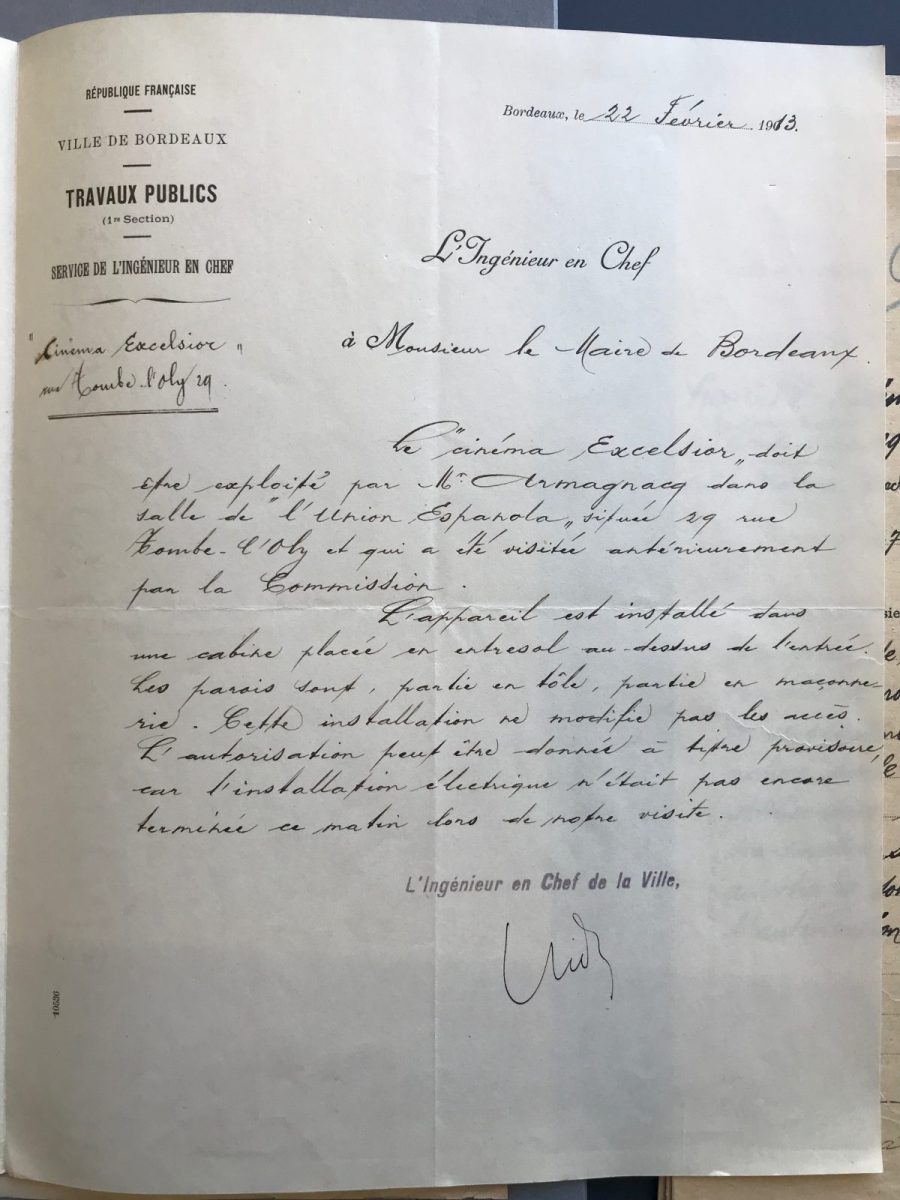 RÉPUBLIQUE FRANÇAISE
VILLE DE BORDEAUX
TRAVAUX PUBLICS
(1re Section)
SERVICE DE L'INGÉNIEUR EN CHEF
"Cinéma Excelsior"
rue Tombe-l'Oly 29.
Bordeaux, le 22 Février 1913.
L'Ingénieur en Chef
à Monsieur le Maire de Bordeaux.
Le "cinéma Excelsior" doit
être exploité par Mr Armagnacq dans la
salle de "l'Union Espanola" située 29 rue
Tombe-l'Oly et qui a été visitée antérieurement
par la Commission.
L'appareil est installé dans
une cabine placée en entresol au-dessus de l'entrée.
Les parois sont, partie en tôle, partie en maçonne-
rie. Cette installation ne modifie pas les accès.
L'autorisation peut être donnée à titre provisoire,
car l'installation électrique n'était pas encore
terminée ce matin lors de notre visite.
L'Ingénieur en Chef de la Ville,
10536